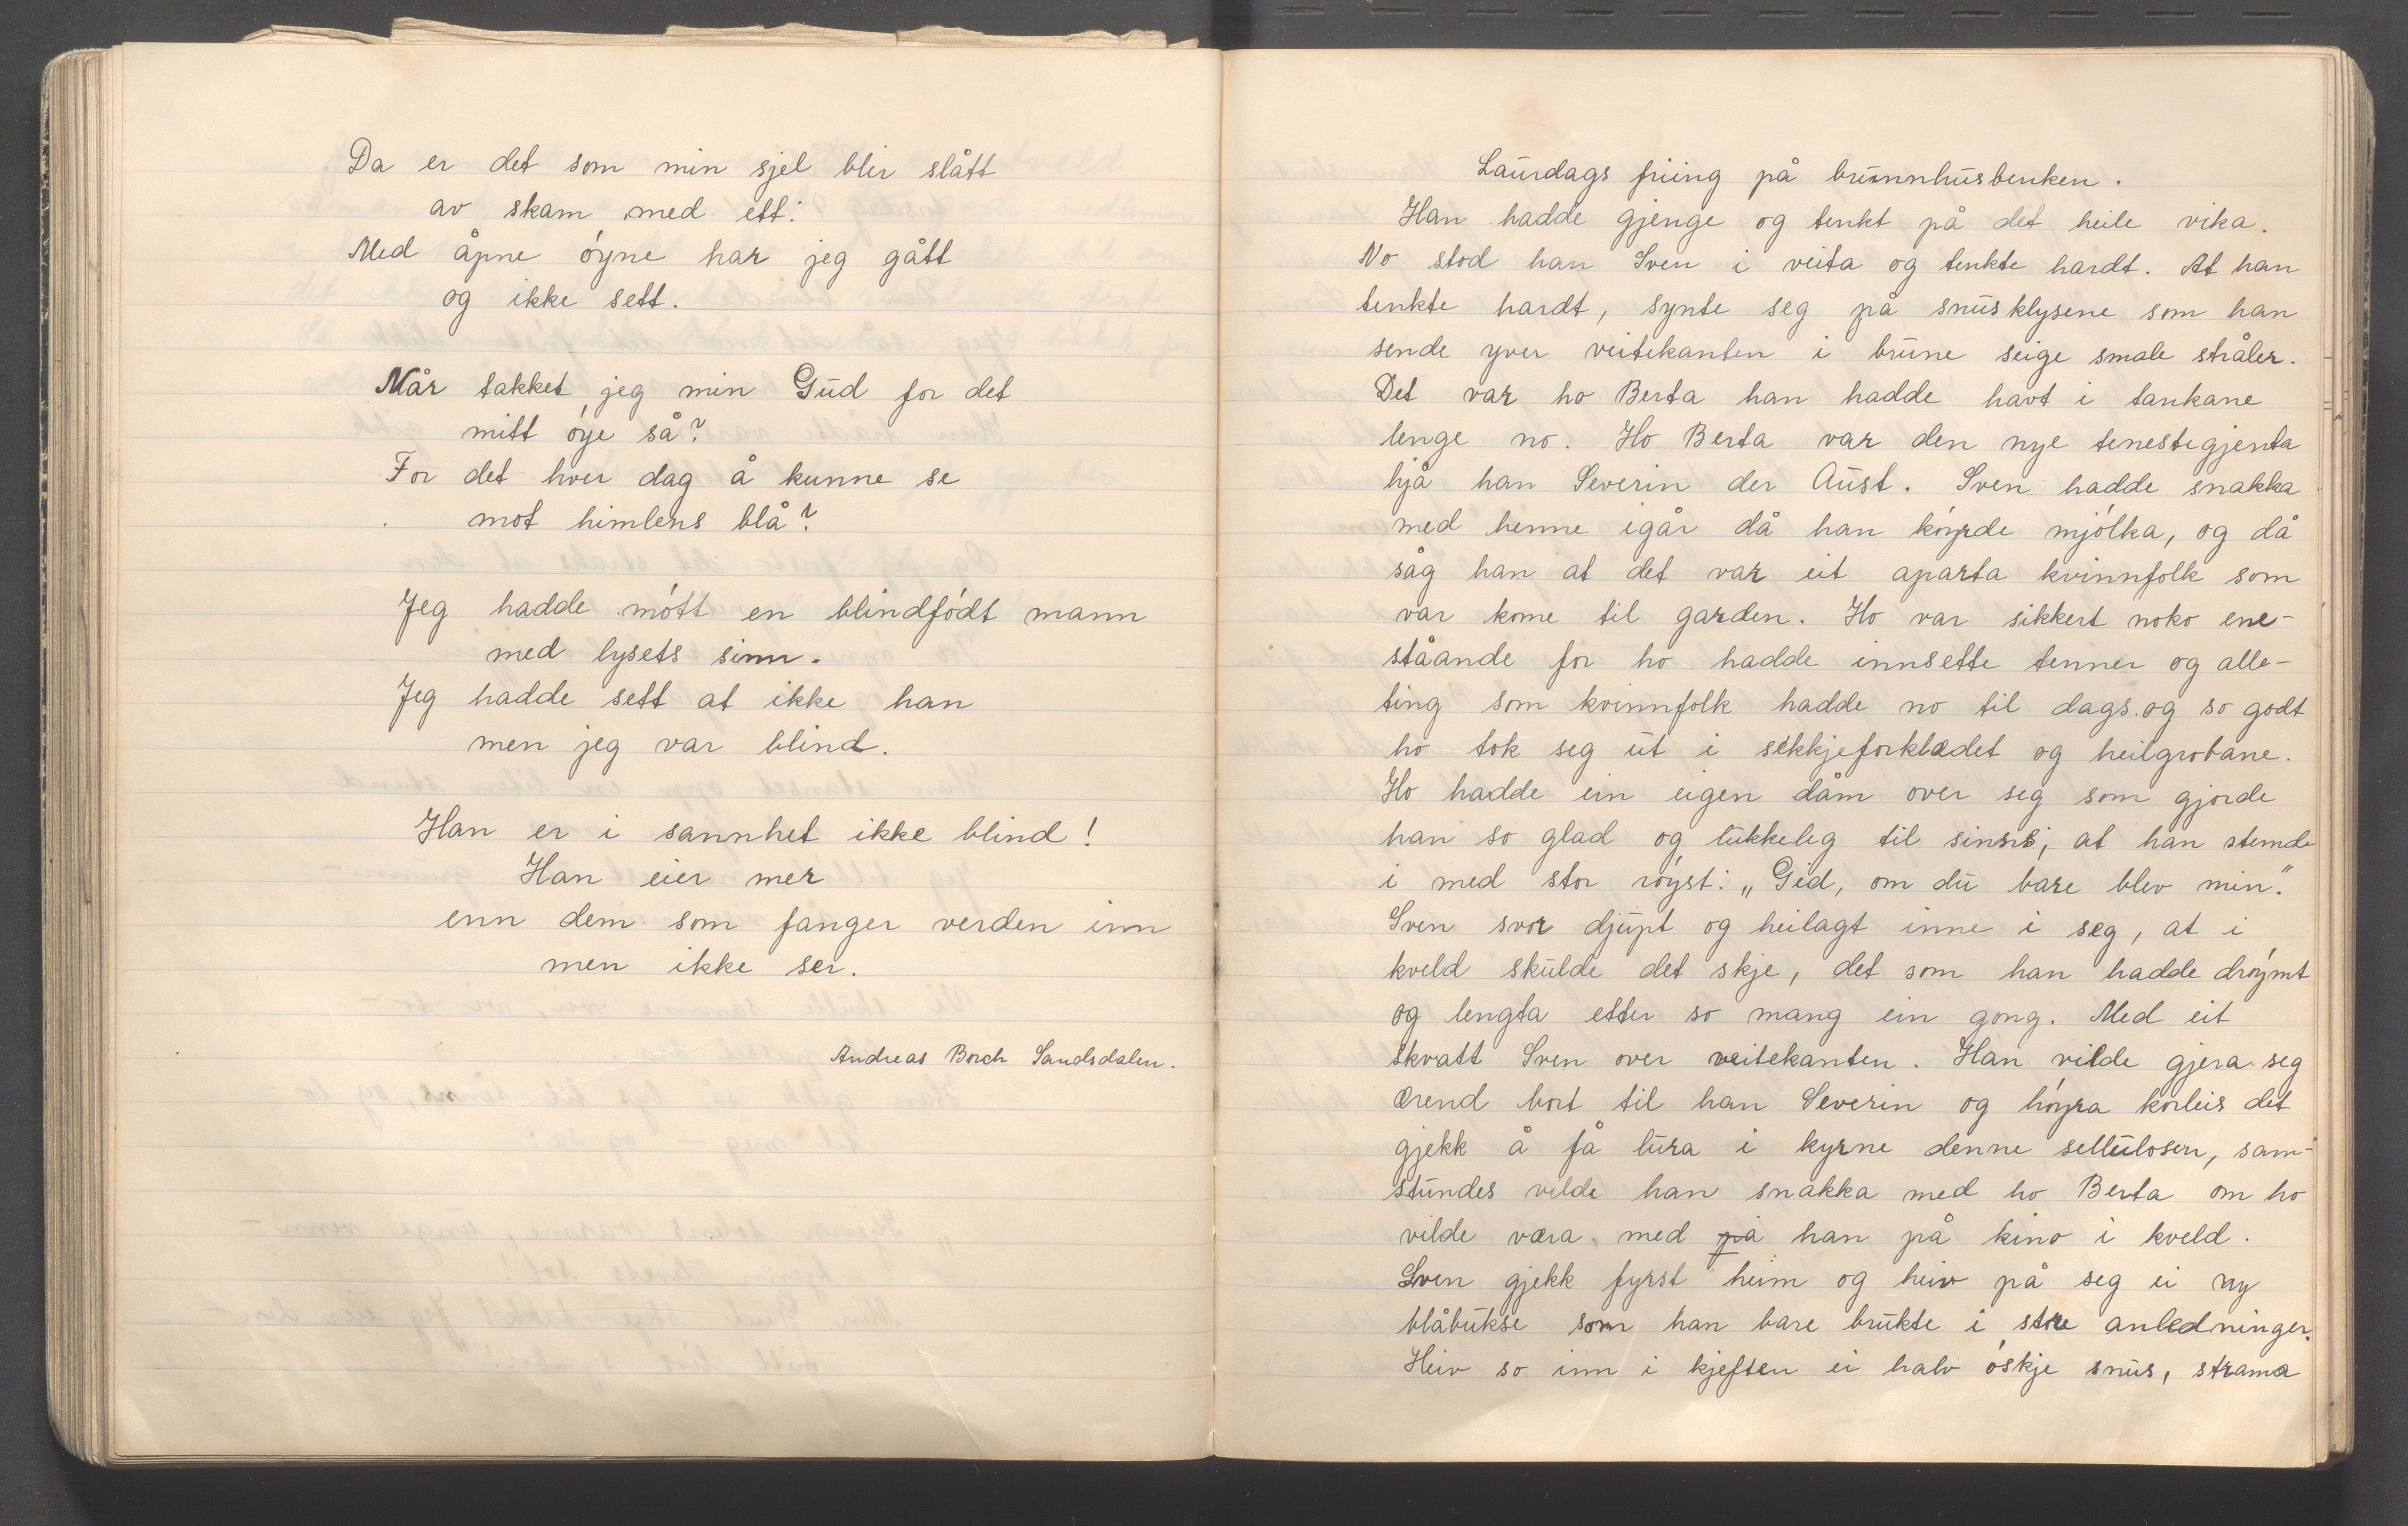 Da er det som min sjel blir slått
av skam med ett:
Med åpne óyne har jeg gått
og ikke sett.
Når takket jeg min Gud for det
mitt óye så?
For det hver dag å kunne se
mot himlens blå?
Jeg hadde mótt en blindfódt mann
med lysets sinn.
Jeg hadde sett at ikke han
men jeg var blind.
Han er i sannhet ikke blind!
Han eier mer
enn dem som fanger verden inn
men ikke ser.
Andreas Borch Sandsdalen.
Laurdags friing på brunnhusbenken.
Han hadde gjenge og tenkt på det heile vika.
No stod han Sven i veita og tenkte hardt. At han
tenkte hardt, synte seg på snusklysene som han
sende yver veitekanten i brune seige smale stråler.
Det var ho Berta han hadde havt i tankane
lenge no. Ho Berta var den nye tenestegjenta
hjå han Severin der Aust. Sven hadde snakka
med henne igår då han kóyrde mjólka, og då
såg han at det var eit aparta kvinnfolk som
var kome til garden. Ho var sikkert noko ene-
ståande for ho hadde innsette tenner og alle-
ting som kvinnfolk hadde no til dags og so godt
ho tok seg ut i sekkjeforklædet og heilgrobane.
Ho hadde ein eigen dåm over seg som gjorde
han so glad og lukkeleg til sinns, at han stemde
i med stor róyst: „Gid, om du bare blev min."
Sven svor djupt og heilagt inne i seg, at i
kveld skulde det skje, det som han hadde dróymt
og lengta etter so mang ein gong. Med eit
skvatt Sven over veitekanten. Han vilde gjera seg
ærend bort til han Severin og hóyra korleis det
gjekk å få lura i kyrne denne sellulosen, sam-
stundes vilde han snakka med ho Berta om ho
vilde væra med på han på kino i kveld.
Sven gjekk fyrst heim og heiv på seg ei ny
blåbukse som han bare brukte i store anledninger.
Heiv so inn i kjeften ei halv óskje snus, strama